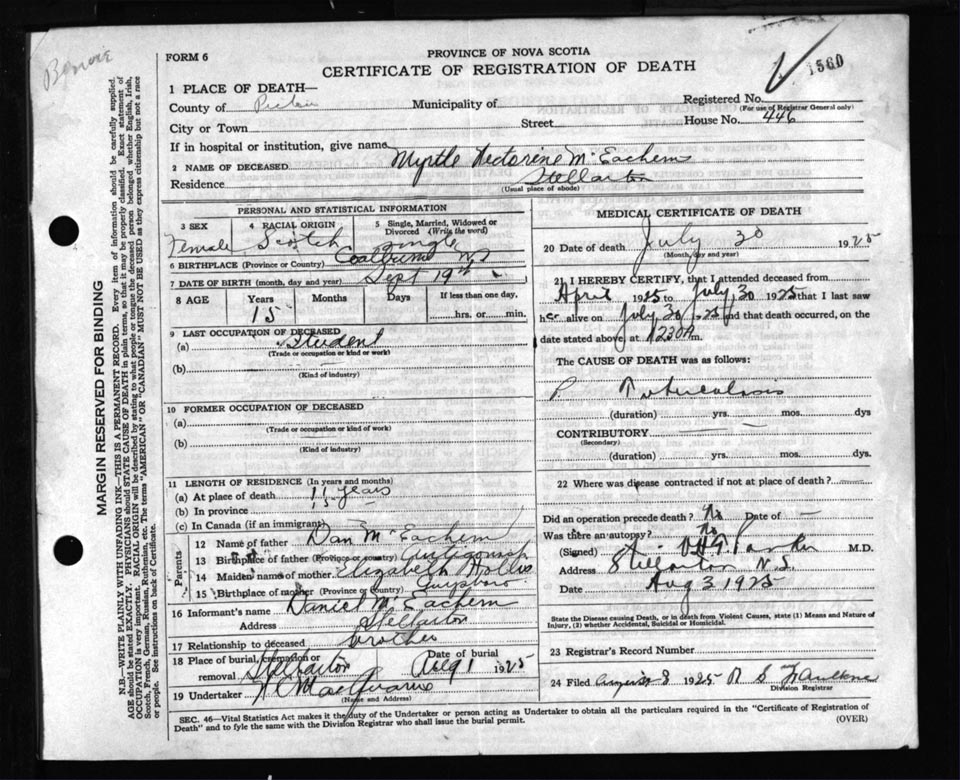 FORM 6
PROVINCE OF NOVA SCOTIA
CERTIFICATE OF REGISTRATION OF DEATH
1560
1 PLACE OF DEATH—
County of Pictou Municipality of
Registered No.
(For use of Registrar General only)
City or Town Street House No. 446
If in hospital or institution, give name
2 NAME OF DECEASED Myrtle Victorine McEachern
Residence Stellarton
(Usual place of abode)
PERSONAL AND STATISTICAL INFORMATION
3 SEX 4 RACIAL ORIGIN 5 Single, Married, Widowed or Divorced (Write the word)
Female Scotch Single
6 BIRTHPLACE (Province or Country) Coalburn N.S
7 DATE OF BIRTH (month, day and year) Sept 19th
8 AGE Years Months Days If less than one day,
15 hrs. or min.
9 LAST OCCUPATION OF DECEASED
(a) Student
(Trade or occupation or kind or work)
(b)
(Kind of industry)
10 FORMER OCCUPATION OF DECEASED
(a)
(Trade or occupation or kind or work)
(b)
(Kind of industry)
11 LENGTH OF RESIDENCE (In years and months)
(a) At place of death 11 years
(b) In province 15
(c) In Canada (if an immigrant)
Parents
12 Name of father Dan McEachern
13 Birthplace of father (Province or country) Antigonish
14 Maiden name of mother Elizabeth Hollis
15 Birthplace of mother (Province or Country) Guysboro
16 Informant's name Daniel McEachern
Address Stellarton
17 Relationship to deceased brother
18 Place of burial, cremation or removal Stellarton Date of burial Aug 1 1925
19 Undertaker
(Name and Address)
MEDICAL CERTIFICATE OF DEATH
20 Date of death July 30 1925
(Month, day and year)
21 I HEREBY CERTIFY, that I attended deceased from
April 1925 to July 30 1925 that I last saw
her alive on July 30 1925 and that death occurred, on
date stated above, at 1230 A m.
The CAUSE OF DEATH was as follows:
P. Tuberculosis
(duration) yrs. mos. dys
CONTRIBUTORY
(Secondary)
(duration) yrs. mos. dys.
22 Where was disease contracted if not at place of death?
Did an operation precede death? No Date of
Was there an autopsy? No
(Signed) M.D.
Address Stellarton N.S.
Date Aug 3 1925
State the Disease causing Death, or in death from Violent Causes, state (1) Means and Nature of
Injury, (2) whether Accidental, Suicidal or Homicidal.
23 Registrar's Record Number
24 Filed August 3 1925 R S Faulkner
Division Registrar
SEC. 46—Vital Statistics Act makes it the duty of the Undertaker or person acting as Undertaker to obtain all the particulars required in the "Certificate of Registration of
Death" and to fyle the same with the Division Registrar who shall issue the burial permit.
(OVER)
MARGIN RESERVED FOR BINDING
N.B.—WRITE PLAINLY WITH UNFADING INK—THIS IS A PERMANENT RECORD. Every item of information should be carefully supplied.
AGE should be stated EXACTLY. PHYSICIANS should STATE CAUSE OF DEATH in plain terms, so that it may be properly classified. Exact statement of
OCCUPATION is very important. RACIAL ORIGIN will be described by stating to what people or tongue the deceased person belonged whether English, Irish,
Scotch, French, German, Russian, Ruthenian, etc. The terms "AMERICAN" OR "CANADIAN" MUST NOT BE USED as they express citizenship but not a race
or people. See instructions on back of Certificate.